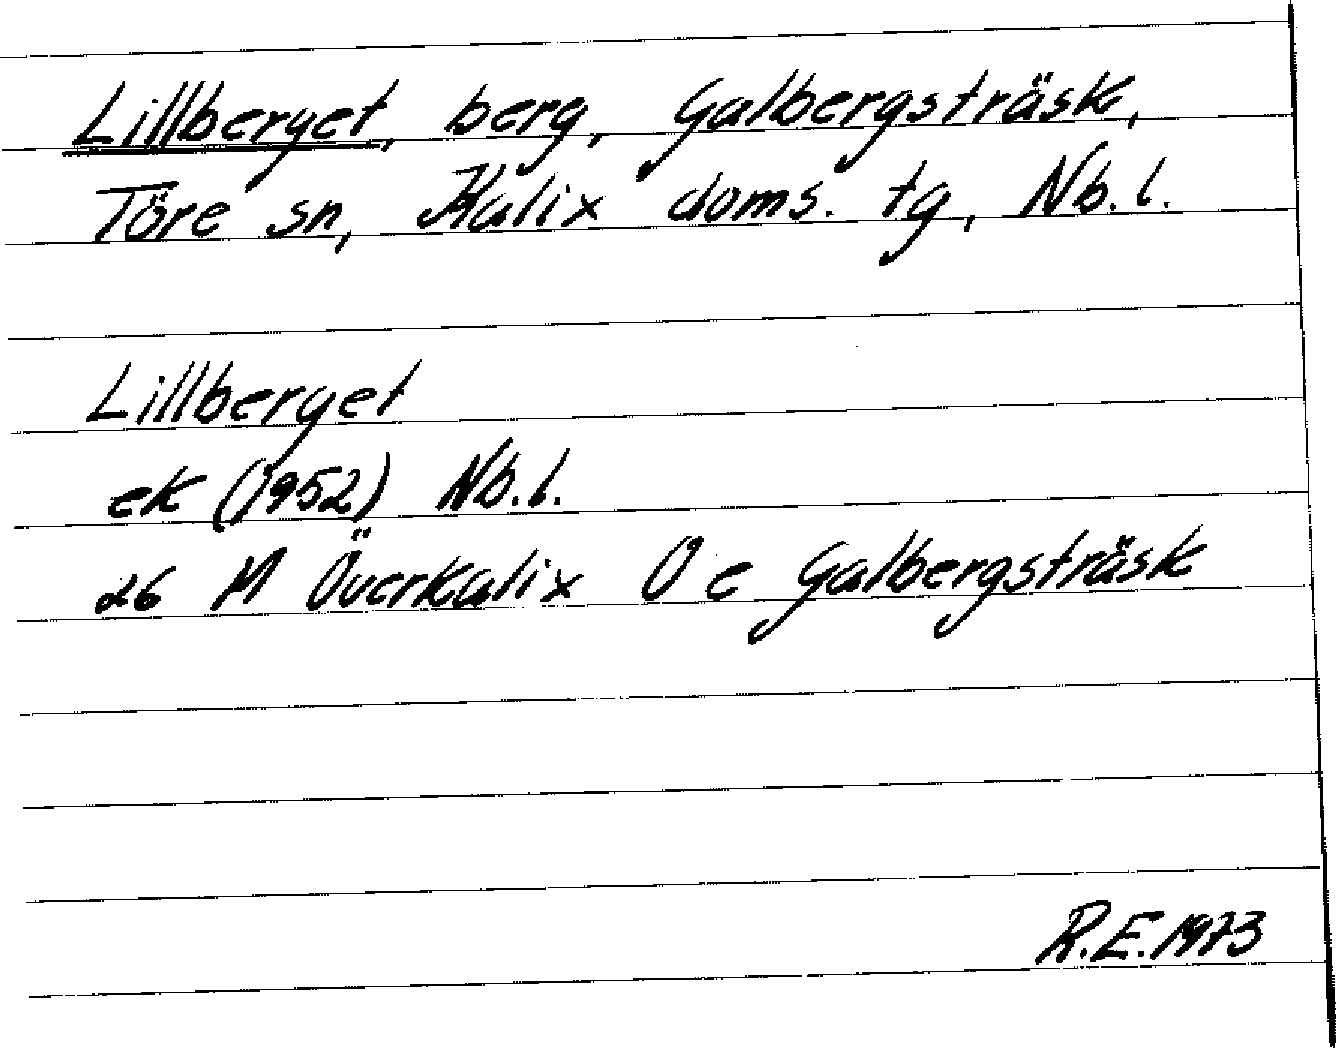 Lillberget, berg, Galbergsträsk,
Töre sn, Kalix doms. tg, Nb.l.
Lillberget
ek (1952) Nb.l.
26 M Överkalix O e Galbergsträsk
R.E.1973